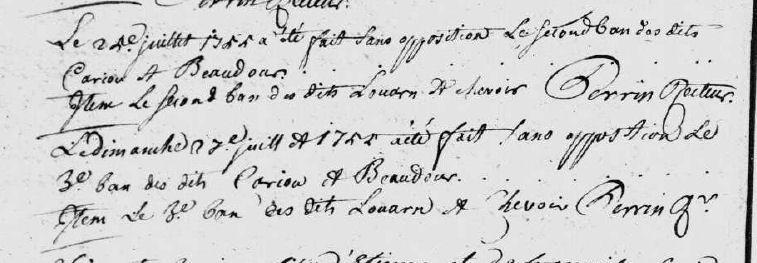 Perrin Recteur.
Le 25e juillet 1755 a été fait sans opposition Le second ban des dits
Cariou et Beaudour.
Item Le second ban des dits Louarn et chevoir Perrin Recteur.
Le dimanche 27e juillet 1755 a été fait sans opposition Le
3e ban des dits Cariou et Beaudour.
Item Le 3e ban des dits Louarn et Chevoir Perrin Rr.